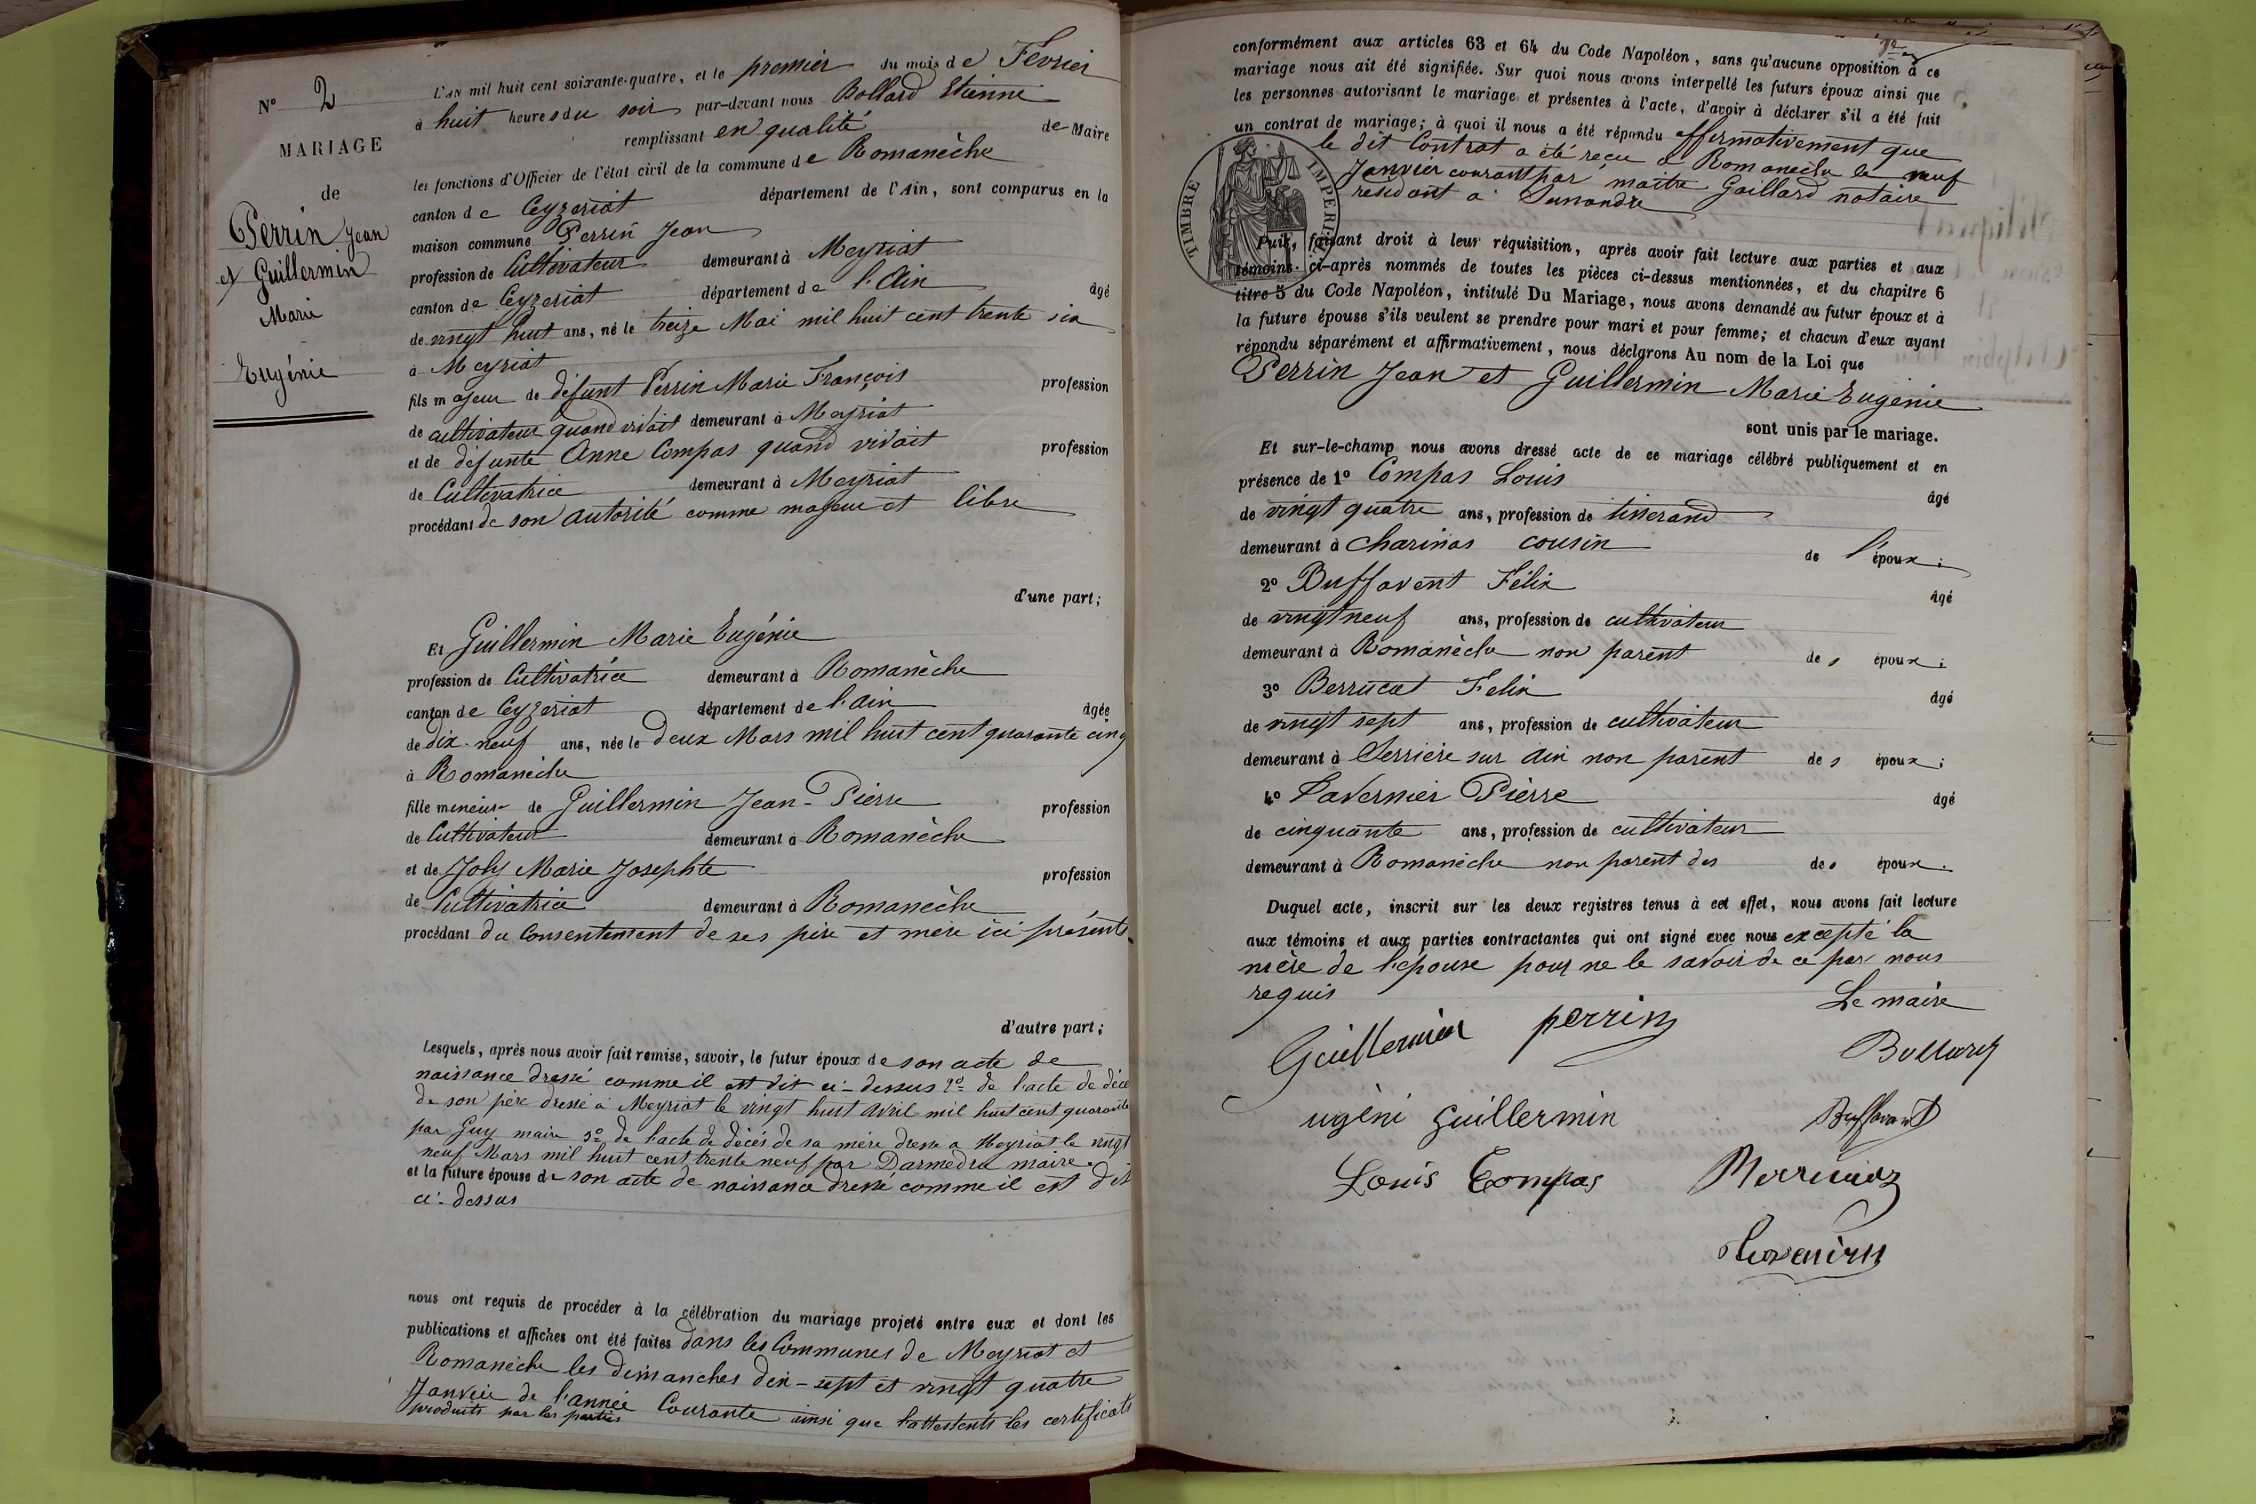 N° 2
MARIAGE
de
Perrin Jean
et Guillermin
Marie
Eugénie
L'AN mil huit cent soixante-quatre, et le premier du mois de Février
à huit heures du soir par-devant nous Bollard Etienne
remplissant en qualité de Maire
les fonctions d'Officier de l'état civil de la commune de Romanèche
canton de Ceyzeriat département de l'Ain, sont comparus en la
maison commune Perrin Jean
profession de Cultivateur demeurant à Meyriat
canton de Ceyzeriat département de l'Ain âgé
de vingt huit ans, né le treize Mai mil huit cent trente six
à Meyriat
fils majeur de défunt Perrin Marie François profession
de cultivateur quand vivait demeurant à Meyriat
et de défunte Anne Compas quand vivait profession
de Cultivatrice demeurant à Meyriat
procédant de son autorité comme majeur et libre
d'une part;
Et Guillermin Marie Eugénie
profession de Cultivatrice demeurant à Romanèche
canton de Ceyzeriat département de l'ain âgée
de dix-neuf ans, née le deux Mars mil huit cent quarante cinq
à Romanèche
fille mineure de Guillermin Jean-Pierre profession
de Cultivateur demeurant à Romanèche
et de Joly Marie Josephte profession
de Cultivatrice demeurant à Romanèche
procédant du consentement de ses père et mère ici présents
d'autre part;
Lesquels, après nous avoir fait remise, savoir, le futur époux de son acte de
naissance dressé comme il est dit ci-dessus 2° de l'acte de décè
de son père dressé à Meyriat le vingt huit avril mil huit cent quarante
par Guy maire 3° de l'acte de décès de sa mère dressé a Meyriat le vingt
neuf Mars mil huit cent trente neuf par Darmedru maire
et la future épouse de son acte de naissance dressé comme il est dit
ci-dessus
nous ont requis de procéder à la célébration du mariage projeté entre eux et dont les
publications et affiches ont été faites dans les Communes de Meyriat et
Romanèche les dimanches dix-sept et vingt quatre
Janvier de l'année Courante ainsi que l'attestent les certificats
produits par les parties
conformément aux articles 63 et 64 du Code Napoléon, sans qu'aucune opposition à ce
mariage nous ait été signifiée. Sur quoi nous avons interpellé les futurs époux ainsi que
les personnes autorisant le mariage et présentes à l'acte, d'avoir à déclarer s'il a été fait
un contrat de mariage; à quoi il nous a été répondu affirmativement que
le dit Contrat a été reçu à Romanèche le neuf
Janvier courant par maitre Gaillard notaire
résidant à Simandre
TIMBRE IMPERIAL
Puis, faisant droit à leur réquisition, après avoir fait lecture aux parties et aux
témoins ci-après nommés de toutes les pièces ci-dessus mentionnées, et du chapitre 6
titre 5 du Code Napoléon, intitulé Du Mariage, nous avons demandé au futur époux et à
la future épouse s'ils veulent se prendre pour mari et pour femme; et chacun d'eux ayant
répondu séparément et affirmativement, nous déclarons Au nom de la Loi que
Perrin Jean et Guillermin Marie Eugénie
sont unis par le mariage.
Et sur-le-champ nous avons dressé acte de ce mariage célébré publiquement et en
présence de 1° Compas Louis âgé
de vingt quatre ans, profession de tisserand
demeurant à Charinas cousin de l'époux;
2° Buffavent Félix âgé
de vingt neuf ans, profession de cultivateur
demeurant à Romanèche non parent des époux;
3° Berrucat Felix âgé
de vingt sept ans, profession de cultivateur
demeurant à Serrière sur ain non parent des époux;
4° Tavernier Pierre âgé
de cinquante ans, profession de cultivateur
demeurant à Romanèche non parent des des époux.
Duquel acte, inscrit sur les deux registres tenus à cet effet, nous avons fait lecture
aux témoins et aux parties contractantes qui ont signé avec nous excepté la
mère de l'épouse pour ne le savoir de ce par nous
requis
Le maire
Guillermin perrin
Bollard
ugéni guillermin Buffavent
Louis Compas